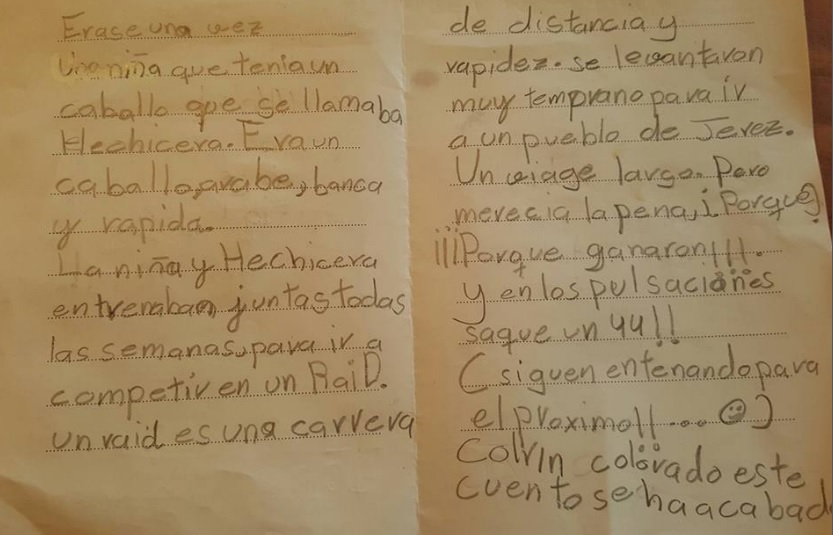 Erase una vez
Una niña que tenia un
caballo que se llamaba
Hechicera. Era un
caballo, arabe, banca
y rapida.
La niña y Hechicera
entrenaban juntas todas
las semanas, para ir a
competir en un RaiD.
un raid es una carrera
de distancia y
rapidez. se levantaron
muy temprano para ir
a un pueblo de Jerez.
Un viage largo. Pero
merecia la pena, ¡Porque?
¡¡¡Porque ganaron!!!.
y en los pulsaciones
saque un 44!!
(siguen entenando para
el proximo!!... ☺)
Colrin colorado este
cuento se ha acabad